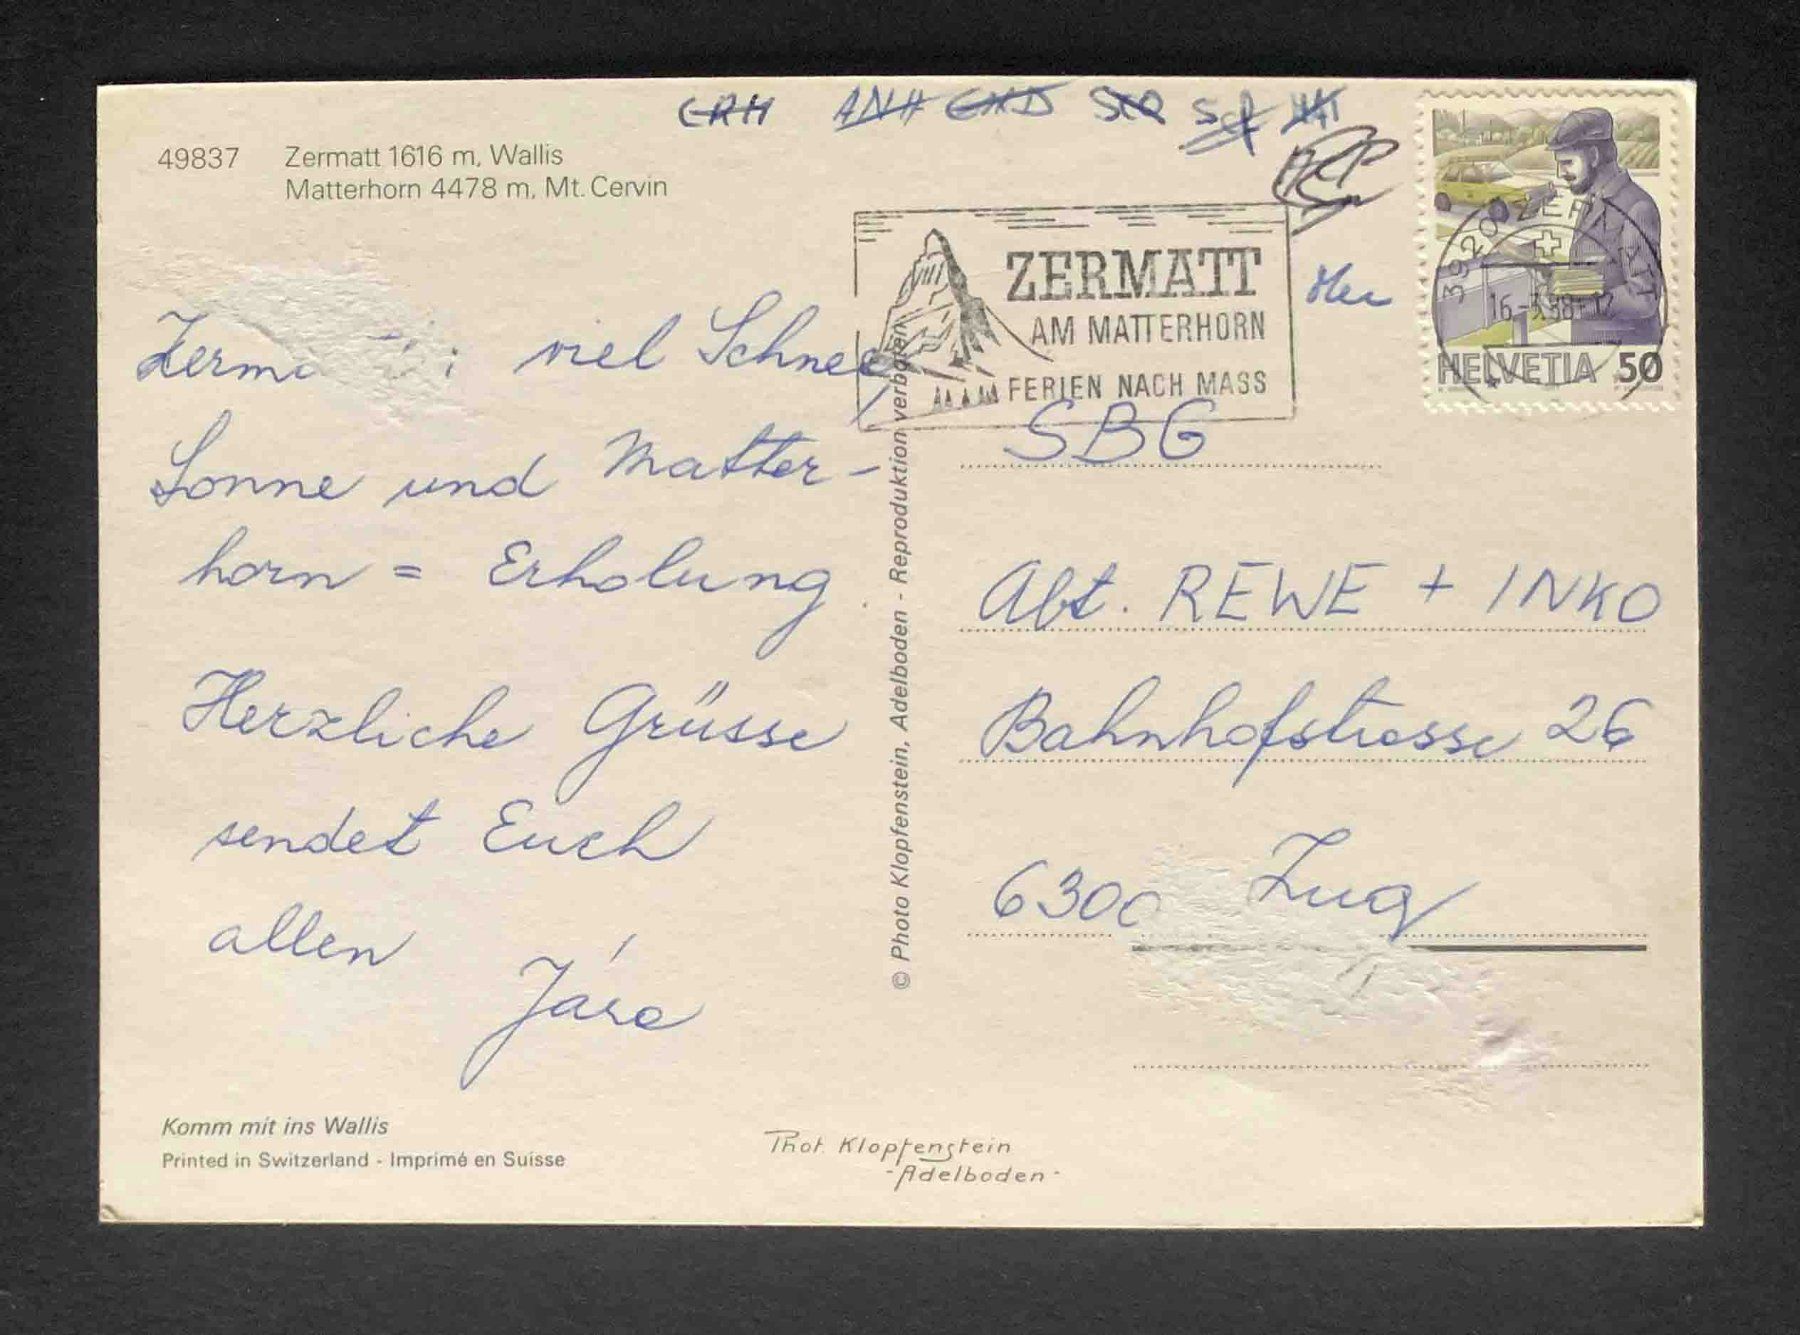 ERH ANH
49837 Zermatt 1616 m, Wallis
Matterhorn 4478 m, Mt. Cervin
ZERMATT
AM MATTERHORN
FERIEN NACH MASS
3920 ZERMATT
16.-3.88-12
HELVETIA 50
viel Schnee,
Sonne und Matter-
horn = Erholung
Herzliche Grüsse
sendet Euch
allen
Jára
© Photo Klopfenstein, Adelboden - Reproduktion verboten
SBG
Abt. REWE + INKO
Bahnhofstrasse 26
6300 Zug
Komm mit ins Wallis
Printed in Switzerland - Imprimé en Suisse
Phot. Klopfenstein
-Adelboden-